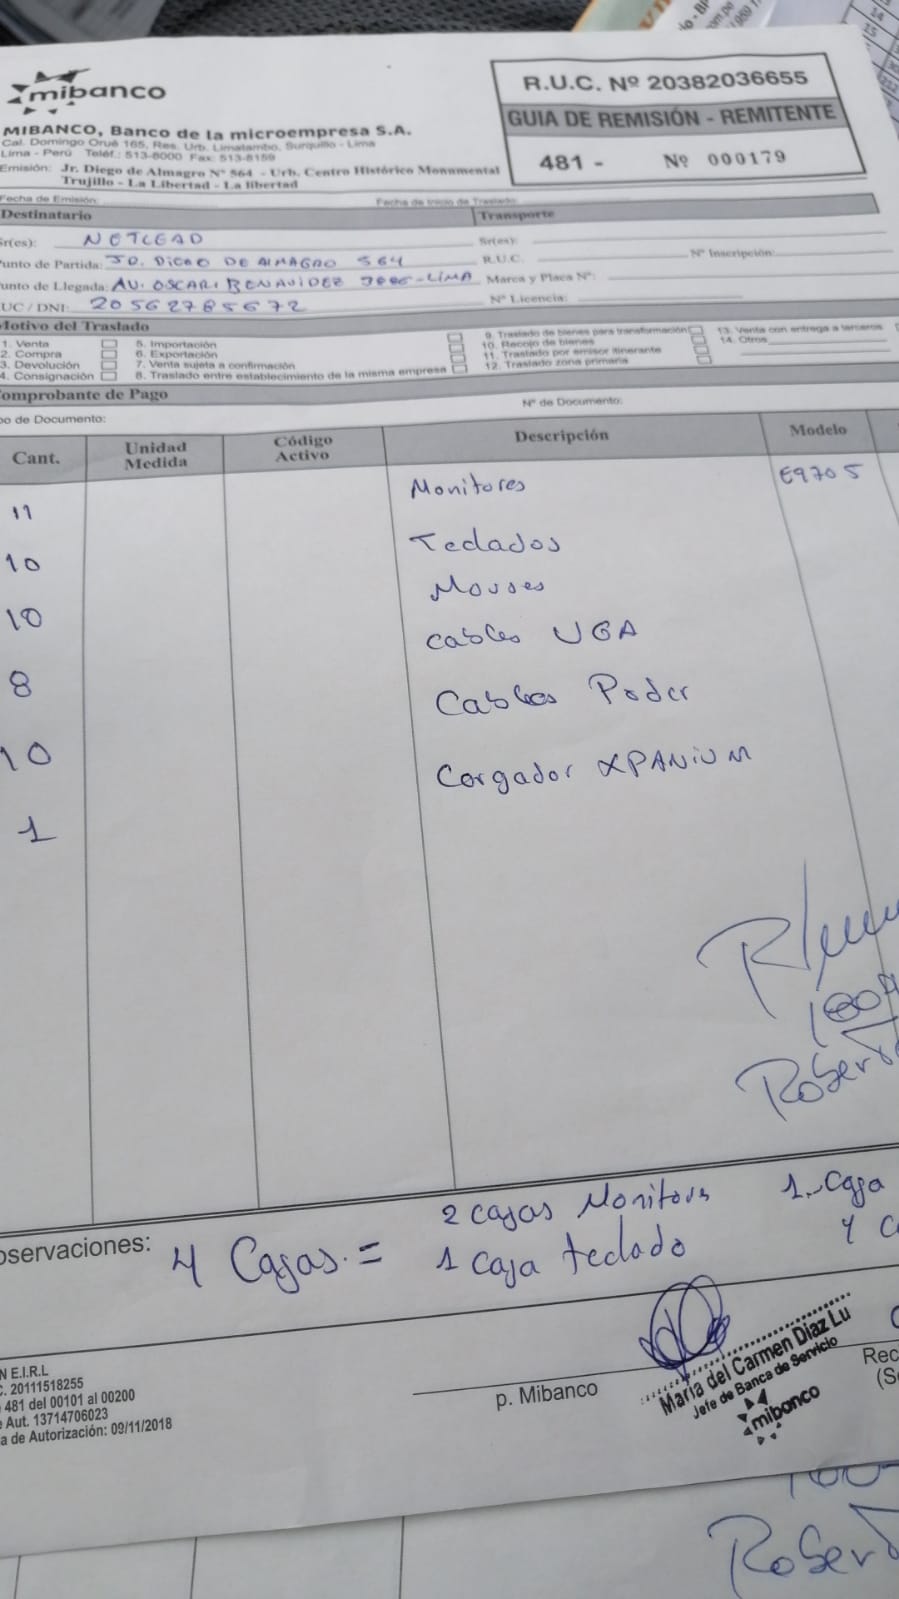 mibanco
MIBANCO, Banco de la microempresa S.A.
Cal. Domingo Orué 165, Res. Urb. Limatambo, Surquillo - Lima
Lima - Perú Teléf.: 513-8000 Fax: 513-8159
Emisión: Jr. Diego de Almagro N° 564 - Urb. Centro Histórico Monumental
Trujillo - La Libertad - La libertad
R.U.C. Nº 20382036655
GUIA DE REMISIÓN - REMITENTE
481 - Nº 000179
Fecha de Emisión: Fecha de Inicio de Traslado:
Destinatario Transporte
Sr(es): NETLEAD Sr(es):
Punto de Partida: JD. DIEGO DE ALMAGRO 564 R.U.C. Nº Inscripción:
Punto de Llegada: AV. OSCAR BENAVIDEZ - LIMA Marca y Placa Nº:
UC / DNI: 20562785672 Nº Licencia:
Motivo del Traslado
1. Venta 5. Importación 9. Traslado de bienes para transformación 13. Venta con entrega a terceros
2. Compra 6. Exportación 10. Recojo de bienes 14. Otros
3. Devolución 7. Venta sujeta a confirmación 11. Traslado por emisor itinerante
4. Consignación 8. Traslado entre establecimiento de la misma empresa 12. Traslado zona primaria
Comprobante de Pago
po de Documento: Nº de Documento:
Cant. Unidad Medida Código Activo Descripción Modelo
11 Monitores E970S
10 Teclados
10 Mouses
8 Cables VGA
10 Cables Poder
1 Cargador XPANIUM
Observaciones: 4 Cajas = 2 cajas Monitores 1 Caja
1 caja teclado
N E.I.R.L
C. 20111518255
481 del 00101 al 00200
Aut. 13714706023
a de Autorización: 09/11/2018
p. Mibanco
María del Carmen Diaz Lu
Jefe de Banca de Servicio
mibanco
Rec
(S